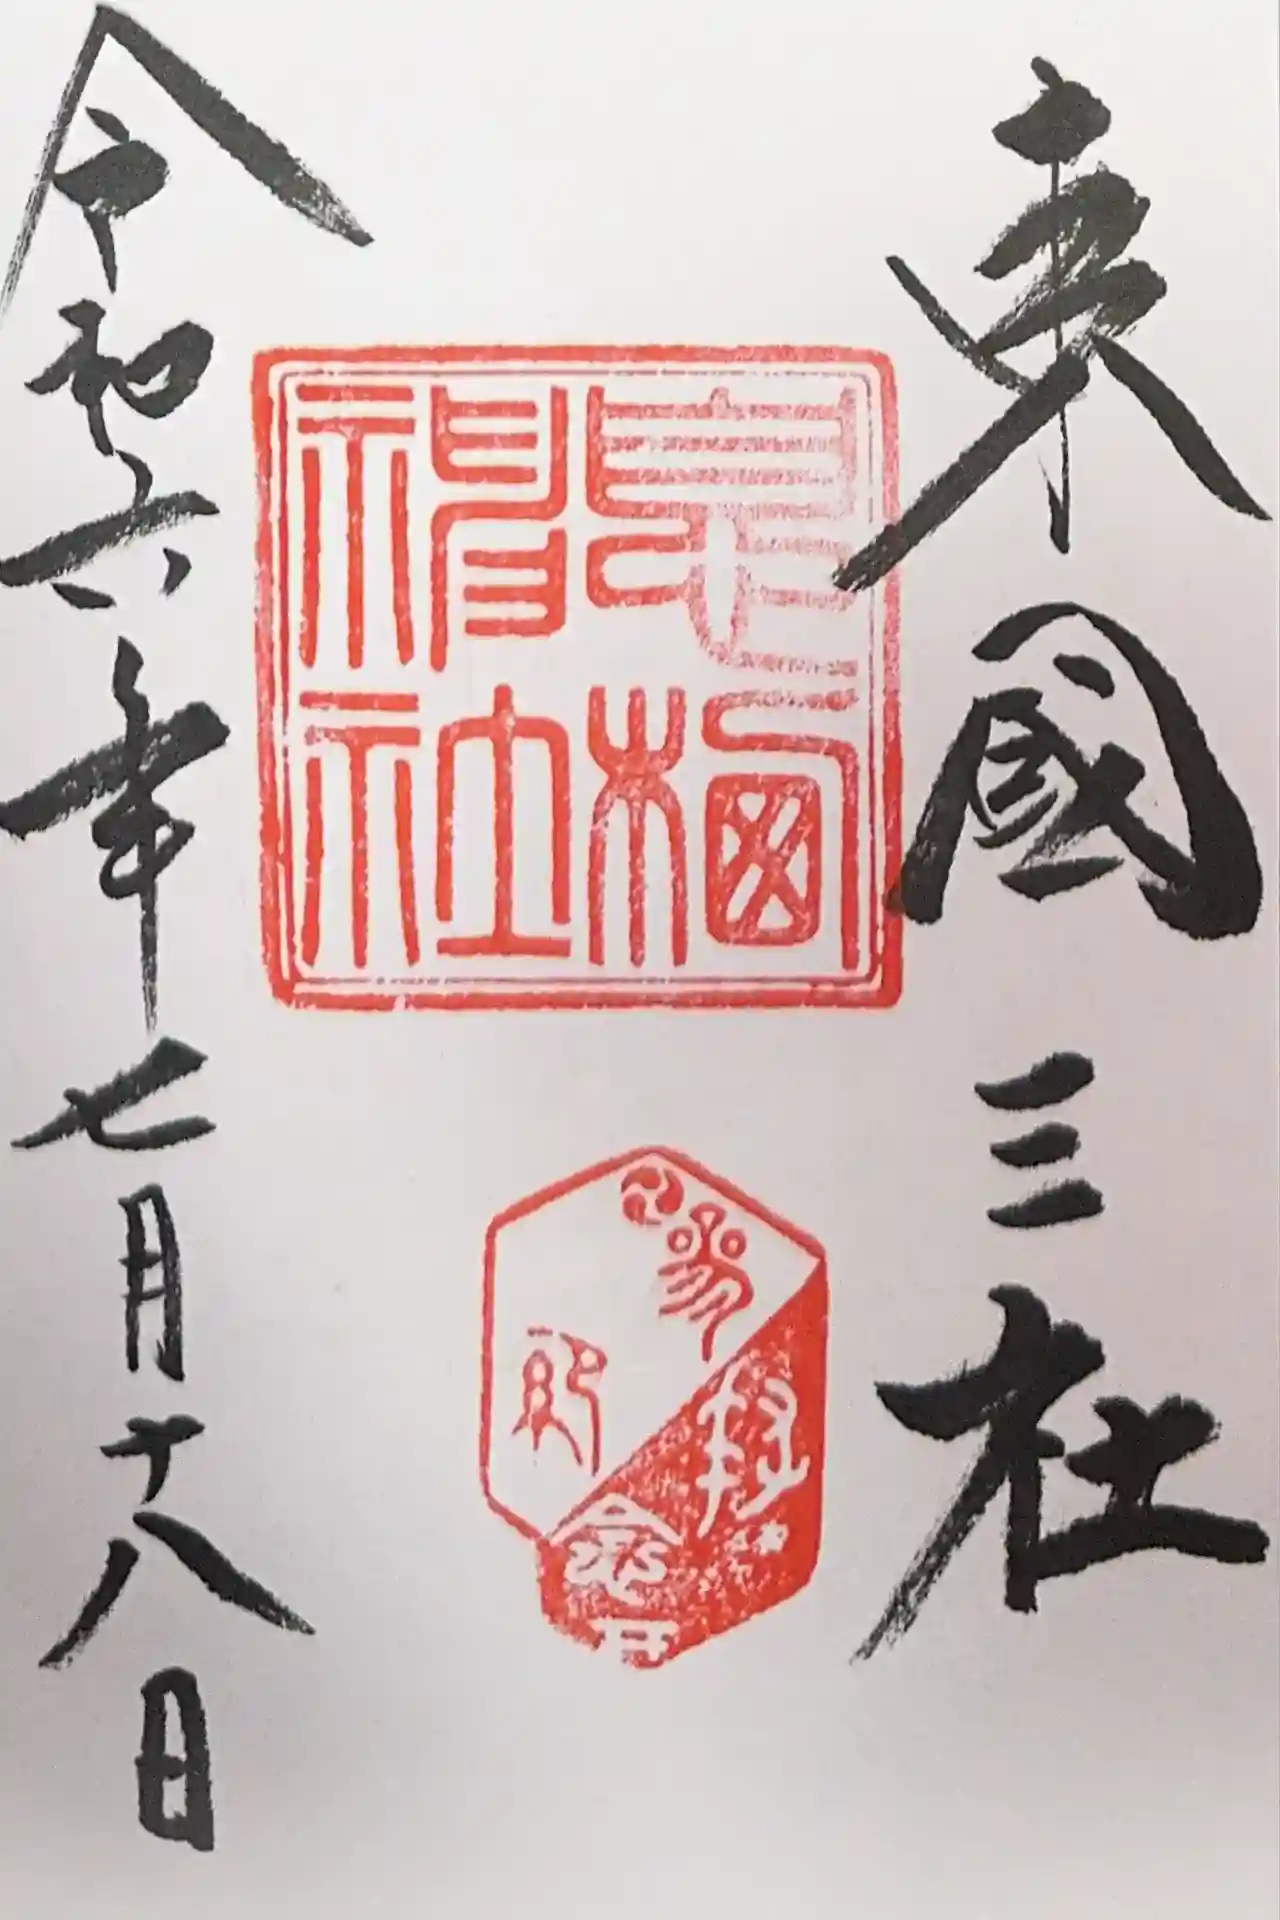 東國三社
息栖神社
令和六年七月十八日